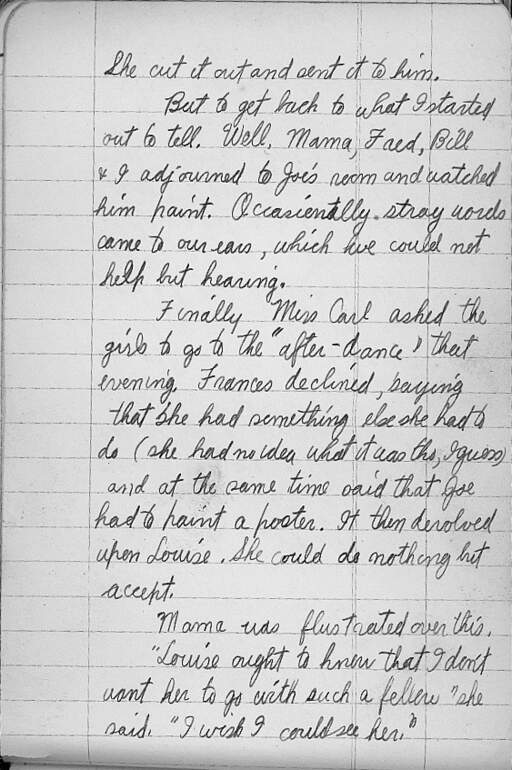 She cut it out and sent it to him.
But to get back to what I started
out to tell. Well, Mama, Fred, Bill
& I adjourned to Joe's room and watched
him paint. Occasientally stray words
came to our ears, which we could not
help but hearing.
Finally Miss Carl asked the
girls to go to the "after-dance" that
evening. Frances declined, saying
that she had something else she had to
do (she had no idea what it was tho, I guess)
and at the same time said that Joe
had to paint a poster. It then devolved
upon Louise. She could do nothing but
accept.
Mama was flustrated over this.
"Louise ought to know that I don't
want her to go with such a fellow" she
said. "I wish I could see her."